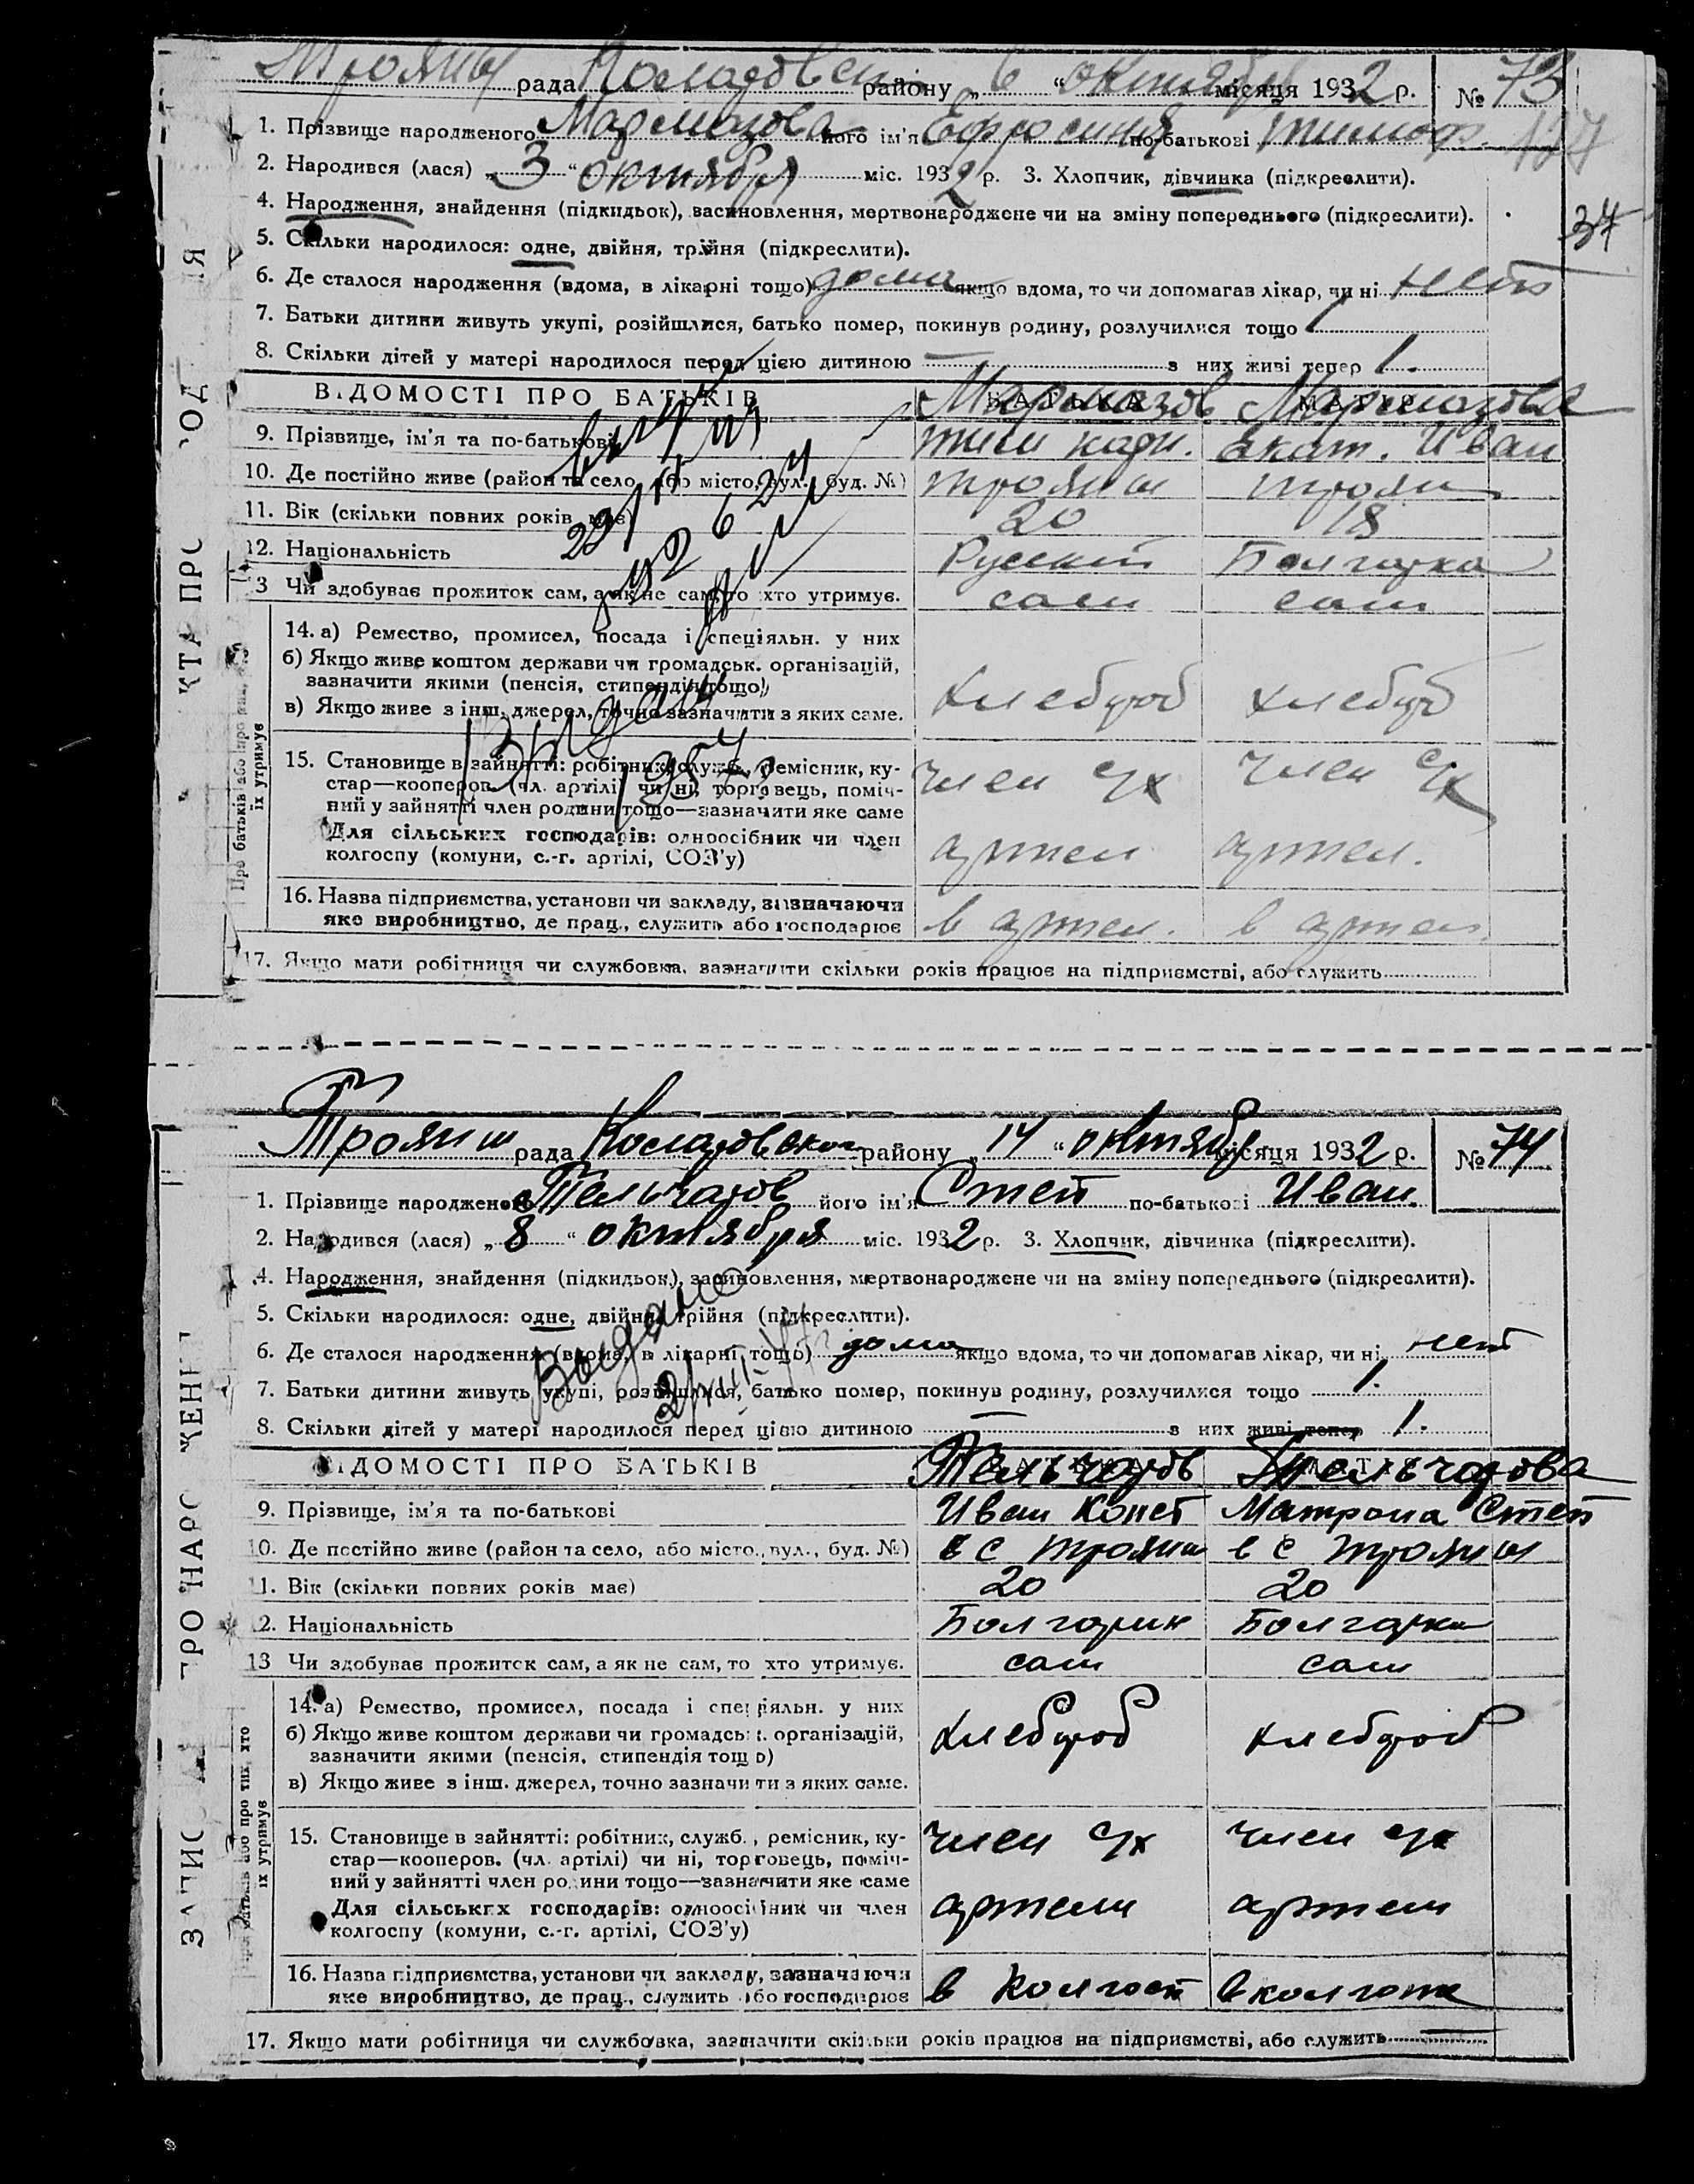 Трояны рада Коларовск району „6“ октября місяця 1932 р. № 73
1. Прізвище народженого Мармазова його ім'я Ефросиния по-батькові Тимоф. 127
2. Народився (лася) „3“ октября міс. 1932 р. 3. Хлопчик, дівчинка (підкреслити).
4. Народження, знайдення (підкидьок), васиновлення, мертвонароджене чи на зміну попереднього (підкреслити).
37
5. Скільки народилося: одне, двійня, трійня (підкреслити).
6. Де сталося народження (вдома, в лікарні тощо) дома якщо вдома, то чи допомагав лікар, чи ні нет
7. Батьки дитини живуть укупі, розійшлися, батько помер, покинув родину, розлучилися тощо 1
8. Скільки дітей у матері народилося перед цією дитиною — з них живі тепер 1.
ВІДОМОСТІ ПРО БАТЬКІВ БАТЬКА МАТІР Мармазов Мармазова
9. Прізвище, ім'я та по-батькові Тим Екат. Иван
10. Де постійно живе (район та село, або місто, вул., буд. №) Трояны Трояны
11. Вік (скільки повних років має) 20 18
12. Національність Русский Болгарка
13 Чи здобуває прожиток сам, а як не сам, то хто утримує. сам сам
14. а) Ремество, промисел, посада і спеціяльн. у них
б) Якщо живе коштом держави чи громадськ. організацій,
зазначити якими (пенсія, стипендія тощо) хлебороб хлебороб
в) Якщо живе з інш. джерел, точно зазначити з яких саме.
15. Становище в зайнятті: робітник, служб., ремісник, ку-
стар—кооперов. (чл. артілі) чи ні, торговець, поміч- член с/х член с/х
ний у зайнятті член родини тощо—зазначити яке саме
Для сільських господарів: одноосібник чи член
колгоспу (комуни, с.-г. артілі, СОЗ'у) артели артел.
Про батьків або про тих, хто їх утримує
16. Назва підприємства, установи чи закладу, зазначаючи
яке виробництво, де прац., служить або господарює в артел. в артел.
17. Якщо мати робітниця чи службовка, зазначити скільки років працює на підприємстві, або служить
Трояны рада Коларовског району „14“ октября місяця 1932 р. № 74
1. Прізвище народженого Тельчаров його ім'я Степ по-батькові Иван.
2. Народився (лася) „8“ октября міс. 1932 р. 3. Хлопчик, дівчинка (підкреслити).
4. Народження, знайдення (підкидьок), засиновлення, мертвонароджене чи на зміну попереднього (підкреслити).
5. Скільки народилося: одне, двійня, трійня (підкреслити).
6. Де сталося народження (вдома, в лікарні тощо) дома якщо вдома, то чи допомагав лікар, чи ні нет
7. Батьки дитини живуть укупі, розійшлися, батько помер, покинув родину, розлучилися тощо 1.
8. Скільки дітей у матері народилося перед цією дитиною — з них живі тепер 1.
ВІДОМОСТІ ПРО БАТЬКІВ Тельчаров Тельчарова
9. Прізвище, ім'я та по-батькові Иван Конст Матрона Степ
10. Де постійно живе (район та село, або місто, вул., буд. №) в с Трояны в с Трояны
11. Вік (скільки повних років має) 20 20
12. Національність Болгарин Болгарка
13 Чи здобуває прожиток сам, а як не сам, то хто утримує. сам сам
14. а) Ремество, промисел, посада і спеціяльн. у них
б) Якщо живе коштом держави чи громадськ. організацій, хлебороб хлебороб
зазначити якими (пенсія, стипендія тощо)
в) Якщо живе з інш. джерел, точно зазначити з яких саме.
15. Становище в зайнятті: робітник, служб., ремісник, ку- член с/х член с/х
стар—кооперов. (чл. артілі) чи ні, торговець, поміч-
ний у зайнятті член родини тощо—зазначити яке саме
Для сільських господарів: одноосібник чи член артели артели
колгоспу (комуни, с.-г. артілі, СОЗ'у)
16. Назва підприємства, установи чи закладу, зазначаючи
яке виробництво, де прац., служить або господарює в колгосп в колгосп
17. Якщо мати робітниця чи службовка, зазначити скільки років працює на підприємстві, або служить —